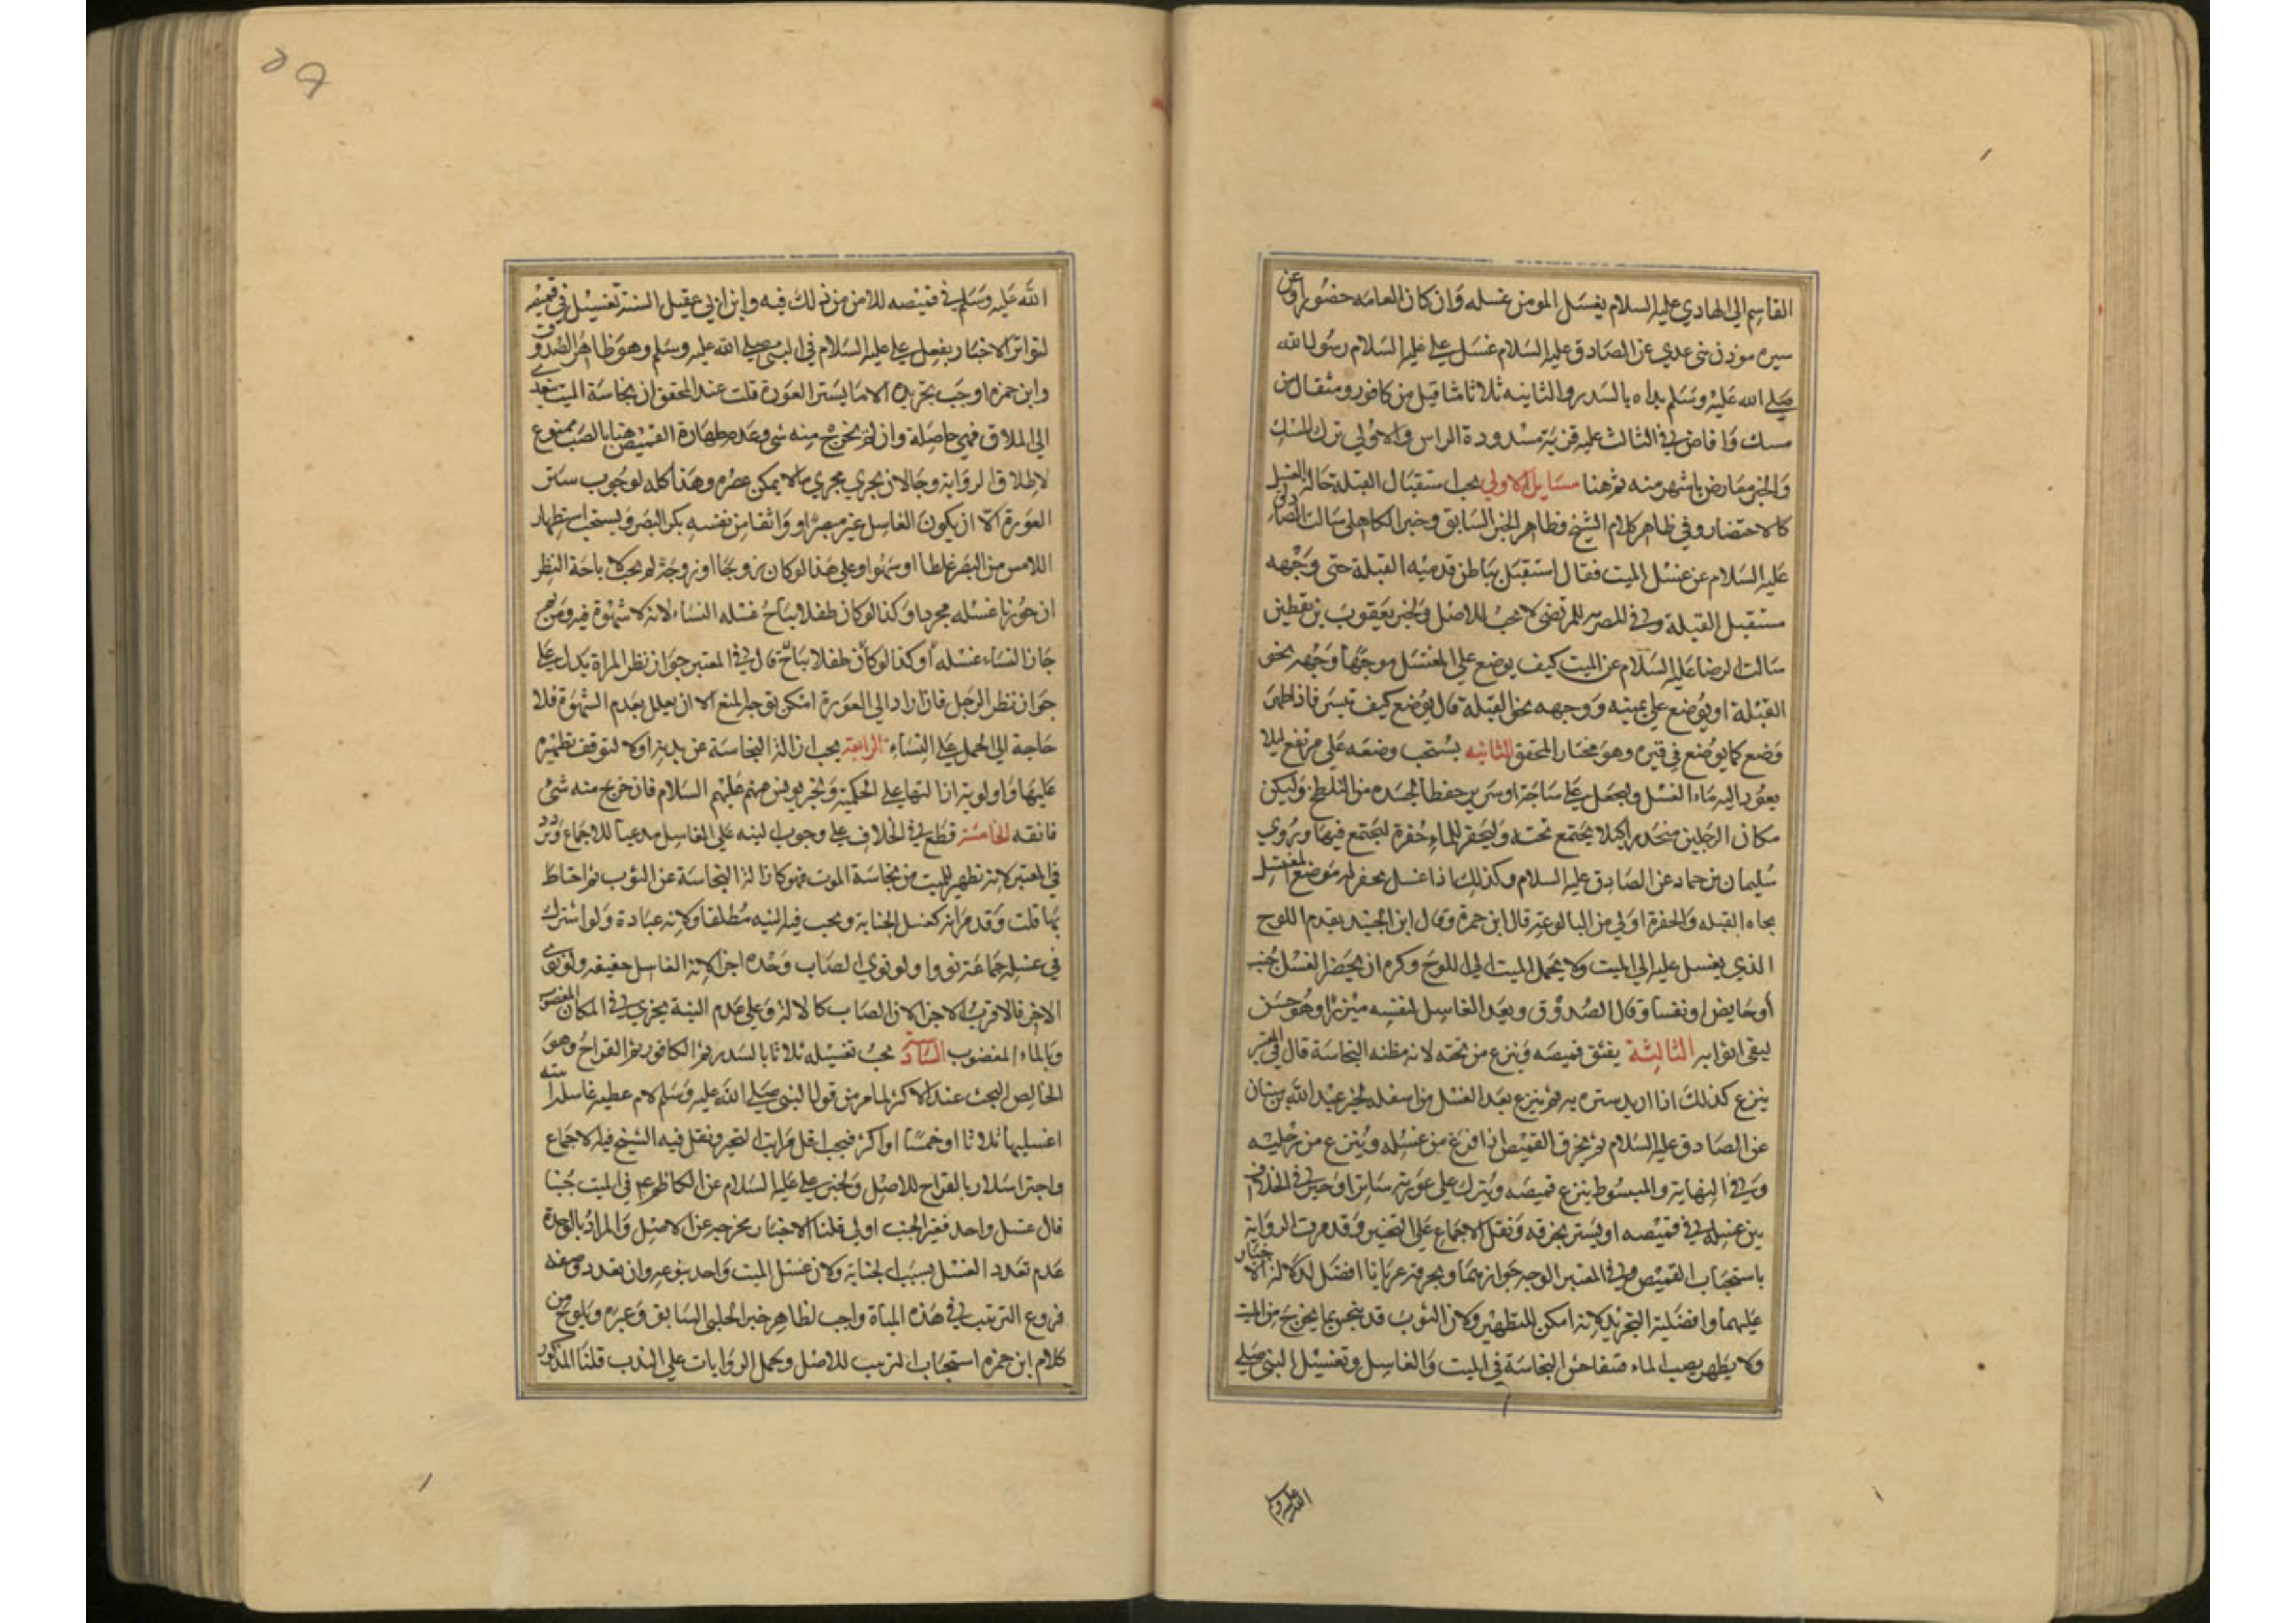 القاسم الي الهادي عليه السلام يغسل المومن غسله وان كان العامه حضورا وعن
سيره موذن بني عدي عن الصادق عليه السلام غسل علي عليه السلام رسول الله
صلي الله عليه وسلم بداه بالسدر والثانيه ثلاثا مثاقيل من كافور ومثقال من
مسك وافاض في الثالث عليه قربة مسدودة الراس والاولي ترك المسك
والخبر معارض باشهر منه ثم هنا مسايل الاولي يجب استقبال القبلة حالة الغسل
كالاحتضار وفي ظاهر كلام الشيخ فظاهر الخبر السابق وخبر الكاهلي سالت الصادق
عليه السلام عن غسل الميت فقال استقبل بباطن قدميه القبلة حتى وجهه
مستقبل القبلة وفي المصريه للمرتضي لا يجب للاصل ولخبر يعقوب بن يقطين
سالت الرضا عليه السلام عن الميت كيف يوضع علي المغتسل موجها وجهه نحو
القبلة او يوضع علي يمينه ووجهه نحو القبلة قال يوضع كيف تيسر فاذا طهر
وضع كما يوضع في قبره وهو مختار المحقق الثانيه يستحب وضعه علي مرتفع ليلا
يعود اليه ماء الغسل وليجعل علي ساجة او سرير حفظا لجسده من التلطخ وليكن
مكان الرجلين منحدرا كيلا يجتمع تحته وليحفر للماء حفرة ليجتمع فيها ويروي
سليمان بن حماد عن الصادق عليه السلام وكذلك اذا غسل يحفر له موضع المغتسل
تجاه القبله والحفرة اولي من البالوعة قال ابن حمزة وقال ابن الجنيد يقدم اللوح
الذي يغسل عليه الي الميت ولا يحمل الميت الي اللوح وكره ان يحضر الغسل جنب
او حايض او نفسا وقال الصدوق ويعد الغاسل لنفسه ميزرا وهو حسن
ليقي اثوابه الثالثة يفتق قميصه وينزع من تحته لانه مظنه النجاسة قال في المعتبر
ينزع كذلك اذا اريد ستره به ثم ينزع بعد الغسل من اسفله لخبر عبد الله بن سنان
عن الصادق عليه السلام ثم يخرق القميص اذا فرغ من غسله وينزع من رجليه
وفي النهاية والمبسوط ينزع قميصه ويترك علي عورته ساترا وخير في الخلاف
بين غسله في قميصه او يستر بخرقه ونقل الاجماع علي التخيير وقد مرت الرواية
باستحباب القميص وفي المعتبر الوجه جوازهما وبخرقة عريانا افضل لدلالة الاخبار
عليهما وافضلية التجريد لانه امكن للتطهير ولان الثوب قد ينجس بما يخرج من الميت
ولا يطهر بصب الماء فتفاحش النجاسة في الميت والغاسل وتغسيل النبي صلي
الله عليه و
٥٩
الله عليه وسلم في قميصه للامن من ذلك فيه وابن ابي عقيل السنة تغسيل في قميصه
لتواتر الاخبار بفعل علي عليه السلام في النبي صلي الله عليه وسلم وهو ظاهر الصدوق
وابن حمزه اوجب تجريده الا ما يستر العورة قلت عند المحقق ان نجاسة الميت تتعدي
الي الملاق فهي حاصلة وان لم يخرج منه شي وعدم طهارة القميص هنا بالصب ممنوع
لاطلاق الرواية وجاز ان يجري مجري مالا يمكن عصره وهذا كله لوجوب ستر
العورة الا ان يكون الغاسل غير مبصر او واثقا من نفسه بكف البصر ويستحب استظهار
اللامس من البصر غلطا او سهوا وعلي هذا لو كان زوجا او زوجة لم يجب لاباحة النظر
ان جوزنا غسله مجردا وكذا لو كان طفلا يباح غسله النساء لانه لا شهوة فيه ومن ثم
جاز النساء غسله او كذا لو كان طفلا يباح قال في المعتبر جواز نظر المراة يدل علي
جواز نظر الرجل فان اراد الي العورة امكن توجه المنع الا ان يعلل بعدم الشهوة فلا
حاجة الي الحمل علي النساء الرابعة يجب ازالة النجاسة عن بدنه اولا لتوقف تطهيره
عليها واولوية ازالتها علي الحكمية ولخبر يونس عنهم عليهم السلام فان خرج منه شي
فانقه الخامسة قطع في الخلاف علي وجوب النيه علي الغاسل مدعيا للاجماع وتردد
في المعتبر لانه تطهير للميت من نجاسة الموت فهو كازالة النجاسة عن الثوب ثم احتاط
بها قلت وقد مر انه كغسل الجنابة ويجب فيه النيه مطلقا ولانه عبادة ولو اشترك
في غسله جماعة نووا ولو نوي الصاب وحده اجزا لانه الغاسل حقيقه ولو نوي
الاخر فالاقرب الاجزا لان الصاب كالالة وعلي عدم النية يجزي في المكان المغصوب
وبالماء المغصوب السادسة يجب تغسيله ثلاثا بالسدر ثم الكافور ثم القراح وهو
الخالص البحت عند الاكثر لما مر من قول النبي صلي الله عليه وسلم لام عطيه غاسلة ابنته
اغسليها ثلاثا او خمسا او اكثر فيجب اقل مراتب التخير ونقل فيه الشيخ فيه الاجماع
واجتزا سلار بالقراح للاصل ولخبر علي عليه السلام عن الكاظم ع م في الميت جنبا
قال غسل واحد فغير الجنب اولي قلنا الاخبار مخرجه عن الاصل والمراد بالوحدة
عدم تعدد الغسل بسبب الجنابة ولان غسل الميت واحد بنوعه وان تعدد صفه
فروع الترتيب في هذه المياة واجب لظاهر خبر الحلبي السابق وغيره ويلوح من
كلام ابن حمزه استحباب الترتيب للاصل وحمل الروايات علي الندب قلنا المذكور